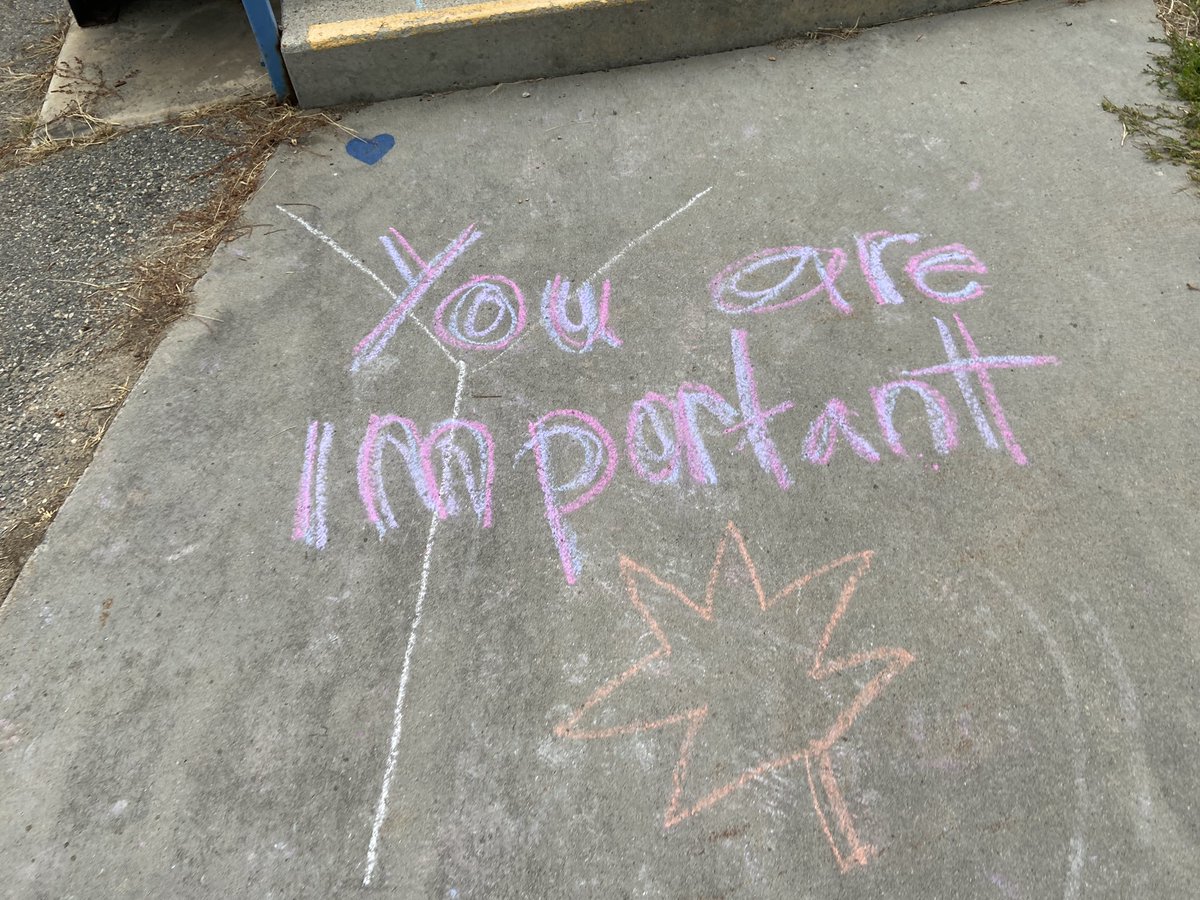 You are
Important